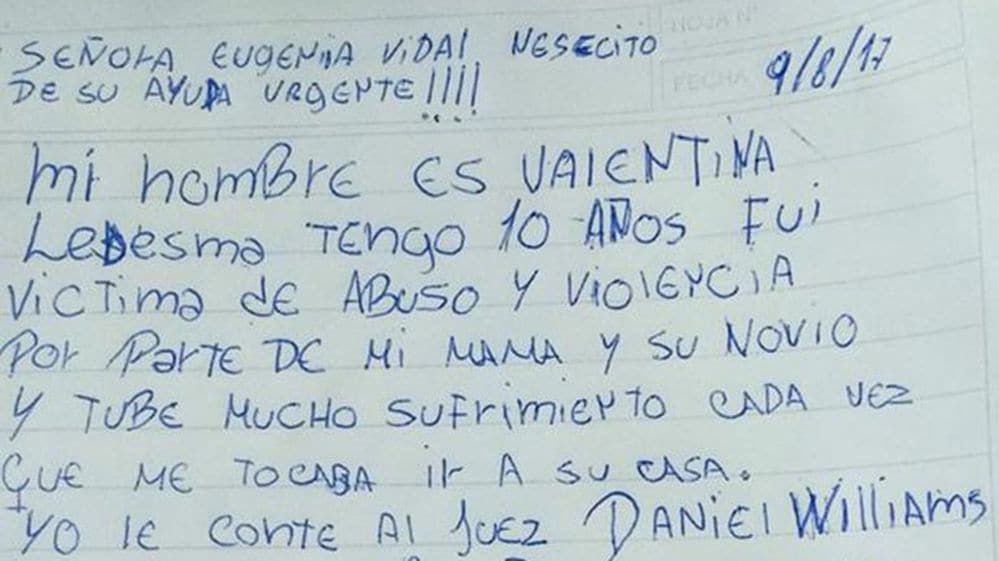 HOJA N°
SEÑORA EUGENIA VIDAL NESECITO
FECHA 9/8/17
DE SU AYUDA URGENTE!!!!
Mi nomBRE ES VAlENTiNA
LeDesma TENgO 10 AÑOS FUi
VicTima de ABUSO Y ViOlENCiA
POr PArTE DE Mi MAMA Y SU NOViO
Y TUBE MUCHO SUFrimiENTO CADA VEZ
QUE ME TOCABA ir A SU CASA.
YO lE CONTE Al JUEZ DANiEl WilliAms